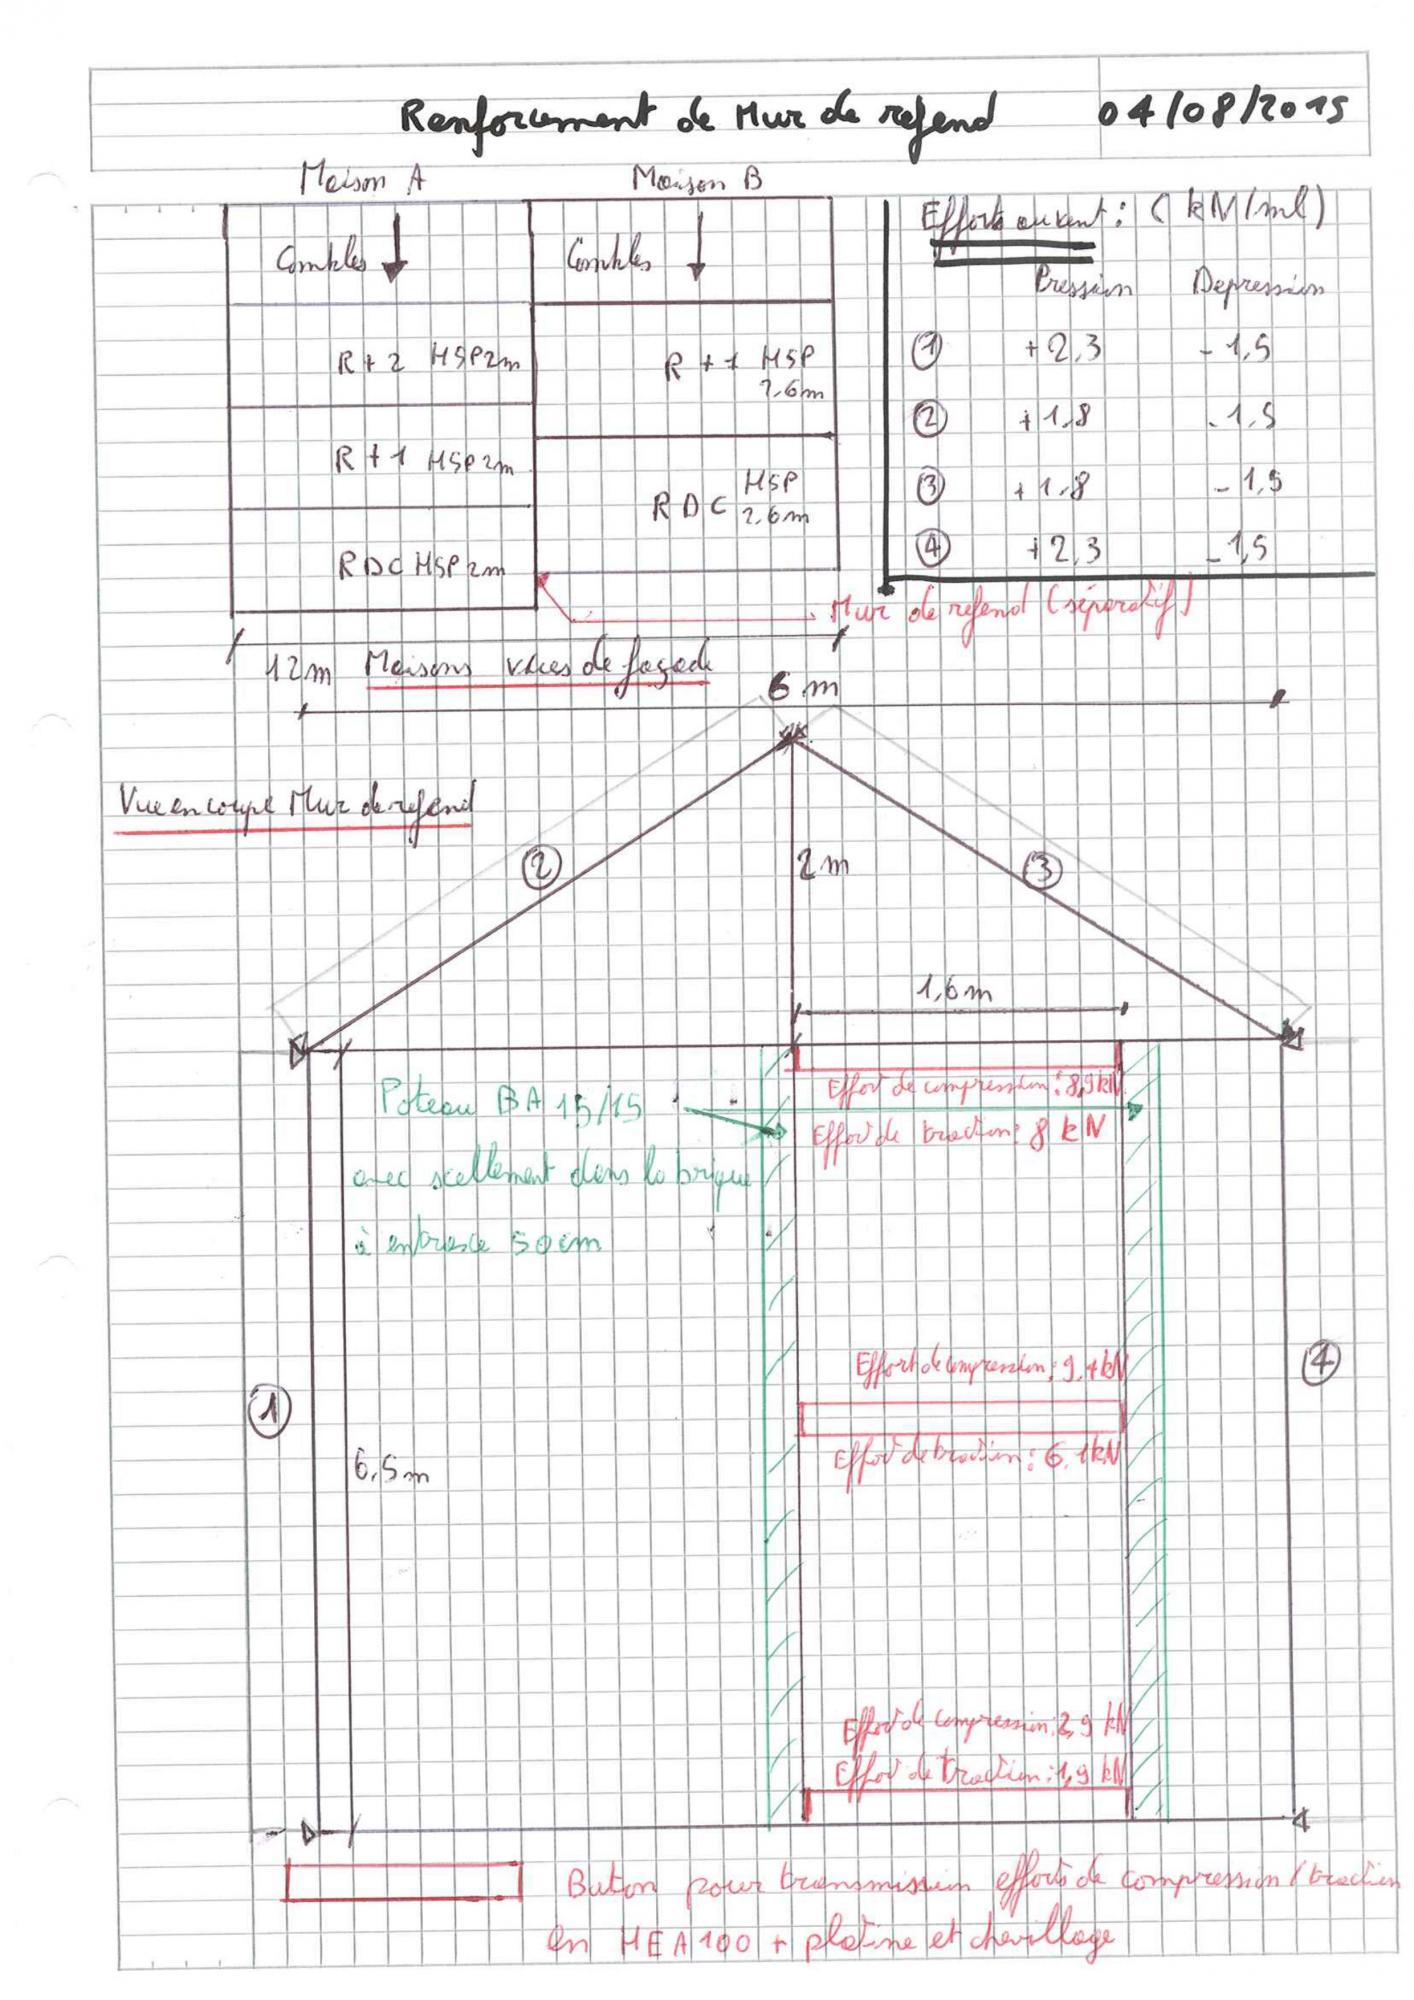 Renforcement de Mur de refend
04/08/2015
Maison A
Maison B
Combles
Combles
R+2 HSP 2m
R+1 HSP
2,6m
R+1 HSP 2m
RDC HSP
2,6m
RDC HSP 2m
Efforts au vent : (kN/ml)
Pression Depression
1 +2,3 -1,5
2 +1,8 -1,5
3 +1,8 -1,5
4 +2,3 -1,5
Mur de refend (séparatif)
12m Maisons vues de façade
6 m
Vue en coupe Mur de refend
2
3
2m
1,6m
Poteau BA 15/15
avec scellement dans la brique
à entraxe 50cm
Effort de compression : 8,9 kN
Effort de traction : 8 kN
Effort de compression : 9,4 kN
Effort de traction : 6,1 kN
1
4
6,5m
Effort de compression : 2,9 kN
Effort de traction : 1,9 kN
Buton pour transmission efforts de compression/traction
en HEA100 + platine et chevillage